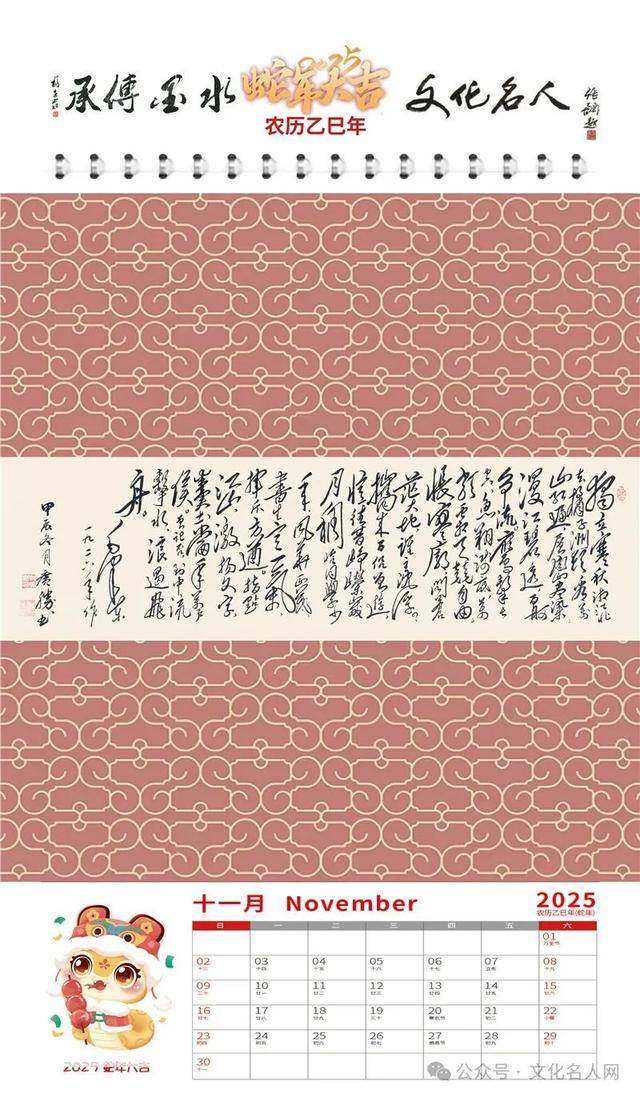 承傳墨水
2025
蛇年大吉
文化名人
农历乙巳年
獨立寒秋湘江北
去橘子洲頭看萬
山紅遍層林盡染
漫江碧透百舸
争流鷹擊長
空魚翔淺底萬
類霜天競自由
悵寥廓問蒼
茫大地誰主沉浮
攜來百侣曾遊
憶往昔崢嶸歲
月稠恰同學少
年風華正茂
書生意氣
揮斥方遒指點
江山激揚文字
糞土當年萬户
侯曾記否到中流
擊水浪遏飛
舟 毛澤東
一九二六年作
甲辰冬月
十一月 November 2025
农历乙巳年(蛇年)
日 一 二 三 四 五 六
01
万圣节
02 03 04 05 06 07 08
十三 十四 十五 十六 十七 立冬 十九
09 10 11 12 13 14 15
二十 廿一 廿二 廿三 廿四 廿五 廿六
16 17 18 19 20 21 22
廿七 廿八 廿九 三十 初二 小雪
23 24 25 26 27 28 29
初四 初五 初六 初七 感恩节 初九 初十
30
十一
2025 蛇年大吉
公众号·文化名人网